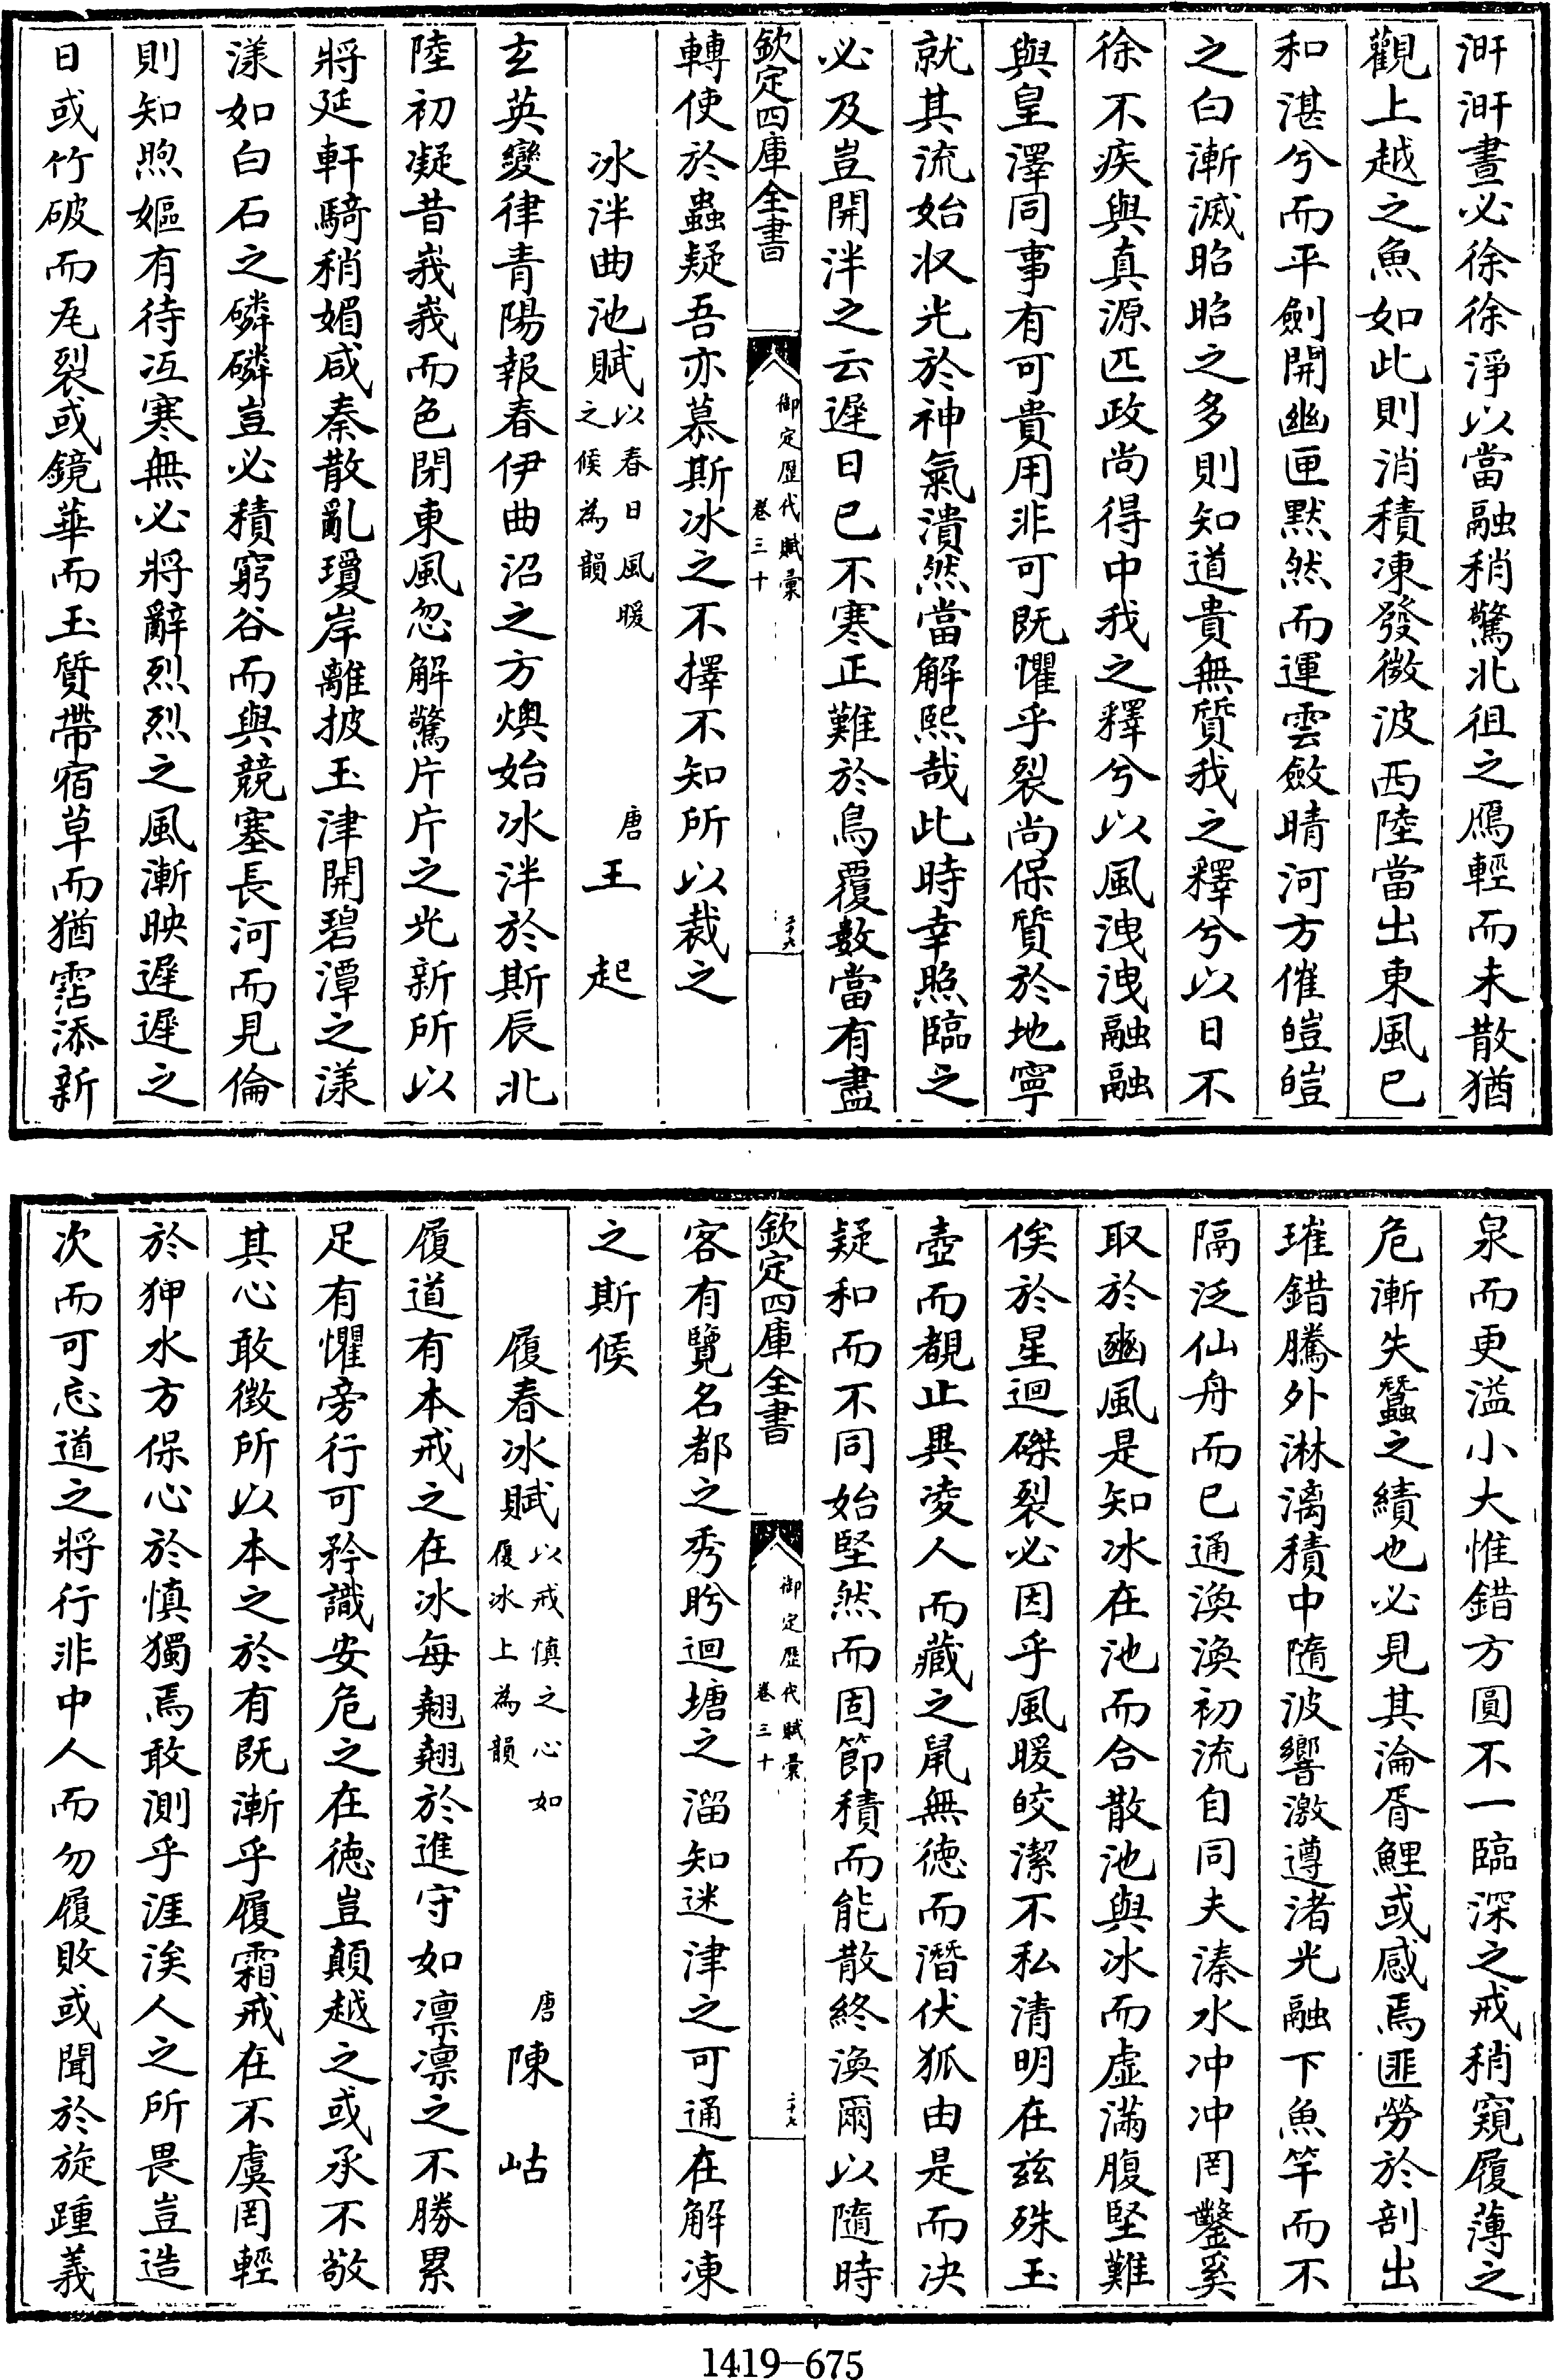 浒浒晝必徐徐淨以當融稍驚北徂之鴈輕而未散猶
觀上越之魚如此則消積凍發微波西陸當出東風已
和湛兮而平劍開幽匣黙然而運雲斂晴河方催皚皚
之白漸滅昭昭之多則知道貴無質我之釋兮以日不
徐不疾與真源匹政尚得中我之釋兮以風洩洩融融
與皇澤同事有可貴用非可既懼乎裂尚保質於地寧
就其流始收光於神氣潰然當解熙哉此時幸照臨之
必及豈開泮之云遲日已不寒正難於鳥覆數當有盡
欽定四庫全書
御定歷代賦彙
卷三十
二十六
轉使於蟲疑吾亦慕斯冰之不擇不知所以裁之
冰泮曲池賦以春日風暖
之候為韻
唐王起
玄英變律青陽報春伊曲沼之方燠始冰泮於斯辰北
陸初凝昔峩峩而色閉東風忽解驚片片之光新所以
將延軒騎稍媚咸秦散亂瓊岸離披玉津開碧潭之漾
漾如白石之磷磷豈必積窮谷而與競塞長河而見倫
則知煦嫗有待冱寒無必將辭烈烈之風漸映遲遲之
日或竹破而瓦裂或鏡華而玉質帶宿草而猶霑添新
泉而更溢小大惟錯方圓不一臨深之戒稍窺履薄之
危漸失蠶之績也必見其淪胥鯉或感焉匪勞於剖出
璀錯騰外淋漓積中隨波響激遵渚光融下魚竿而不
隔泛仙舟而已通渙渙初流自同夫溱水冲冲罔鑿奚
取於豳風是知冰在池而合散池與冰而虚滿腹堅難
俟於星迴磔裂必因乎風暖皎潔不私清明在兹殊玉
壺而覩止異凌人而藏之鼠無徳而潛伏狐由是而決
疑和而不同始堅然而固節積而能散終渙爾以隨時
欽定四庫全書
御定歷代賦彙
卷三十
二十七
客有覽名都之秀眄迴塘之溜知迷津之可通在解凍
之斯候
履春冰賦以戒慎之心如
履冰上為韻
唐陳岵
履道有本戒之在冰每翹翹於進守如凛凛之不勝累
足有懼旁行可矜識安危之在徳豈顛越之或承不敬
其心敢徴所以本之於有既漸乎履霜戒在不虞罔輕
於狎水方保心於慎獨焉敢測乎涯涘人之所畏豈造
次而可忘道之將行非中人而勿履敗或聞於旋踵義
1419-675